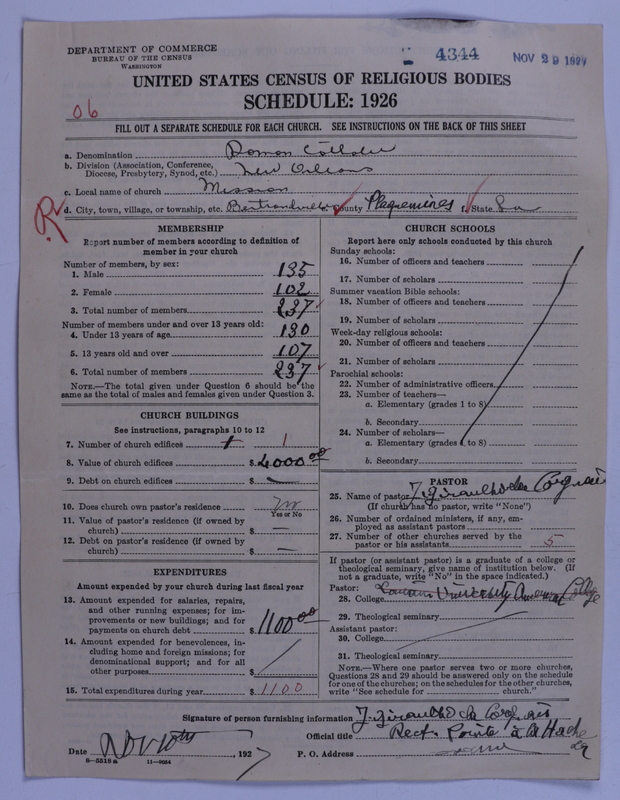 DEPARTMENT OF COMMERCE
BUREAU OF THE CENSUS
WASHINGTON
4344
NOV 29 1927
UNITED STATES CENSUS OF RELIGIOUS BODIES
SCHEDULE: 1926
06
FILL OUT A SEPARATE SCHEDULE FOR EACH CHURCH. SEE INSTRUCTIONS ON THE BACK OF THIS SHEET
a. Denomination Roman Catholic
b. Division (Association, Conference, Diocese, Presbytery, Synod, etc.) New Orleans
c. Local name of church Mission
R
d. City, town, village, or township, etc. Bertrandville County Plaquemines f. State La
MEMBERSHIP
Report number of members according to definition of
member in your church
Number of members, by sex:
1. Male 135
2. Female 102
3. Total number of members 237
Number of members under and over 13 years old:
4. Under 13 years of age 130
5. 13 years old and over 107
6. Total number of members 237
NOTE.—The total given under Question 6 should be the
same as the total of males and females given under Question 3.
CHURCH BUILDINGS
See instructions, paragraphs 10 to 12
7. Number of church edifices 1
8. Value of church edifices $ 4000 00
9. Debt on church edifices $ —
10. Does church own pastor's residence? No
Yes or No
11. Value of pastor's residence (if owned by
church) $ —
12. Debt on pastor's residence (if owned by
church) $ —
EXPENDITURES
Amount expended by your church during last fiscal year
13. Amount expended for salaries, repairs,
and other running expenses; for im-
provements or new buildings; and for
payments on church debt $ 1100 00
14. Amount expended for benevolences, in-
cluding home and foreign missions; for
denominational support; and for all
other purposes $
15. Total expenditures during year $ 1100
CHURCH SCHOOLS
Report here only schools conducted by this church
Sunday schools:
16. Number of officers and teachers
17. Number of scholars
Summer vacation Bible schools:
18. Number of officers and teachers
19. Number of scholars
Week-day religious schools:
20. Number of officers and teachers
21. Number of scholars
Parochial schools:
22. Number of administrative officers
23. Number of teachers—
a. Elementary (grades 1 to 8)
b. Secondary
24. Number of scholars—
a. Elementary (grades 1 to 8)
b. Secondary
PASTOR
25. Name of pastor
(If church has no pastor, write "None")
26. Number of ordained ministers, if any, em-
ployed as assistant pastors
27. Number of other churches served by the
pastor or his assistants 5
If pastor (or assistant pastor) is a graduate of a college or
theological seminary, give name of institution below. (If
not a graduate, write "No" in the space indicated.)
Pastor:
28. College University American College
29. Theological seminary
Assistant pastor:
30. College
31. Theological seminary
NOTE.—Where one pastor serves two or more churches,
Questions 28 and 29 should be answered only on the schedule
for one of the churches; on the schedules for the other churches,
write "See schedule for church."
Signature of person furnishing information
Official title Rect. Pointe a la Hache
La
Date Nov 10th, 1927
P. O. Address
8—5518a 11—9084